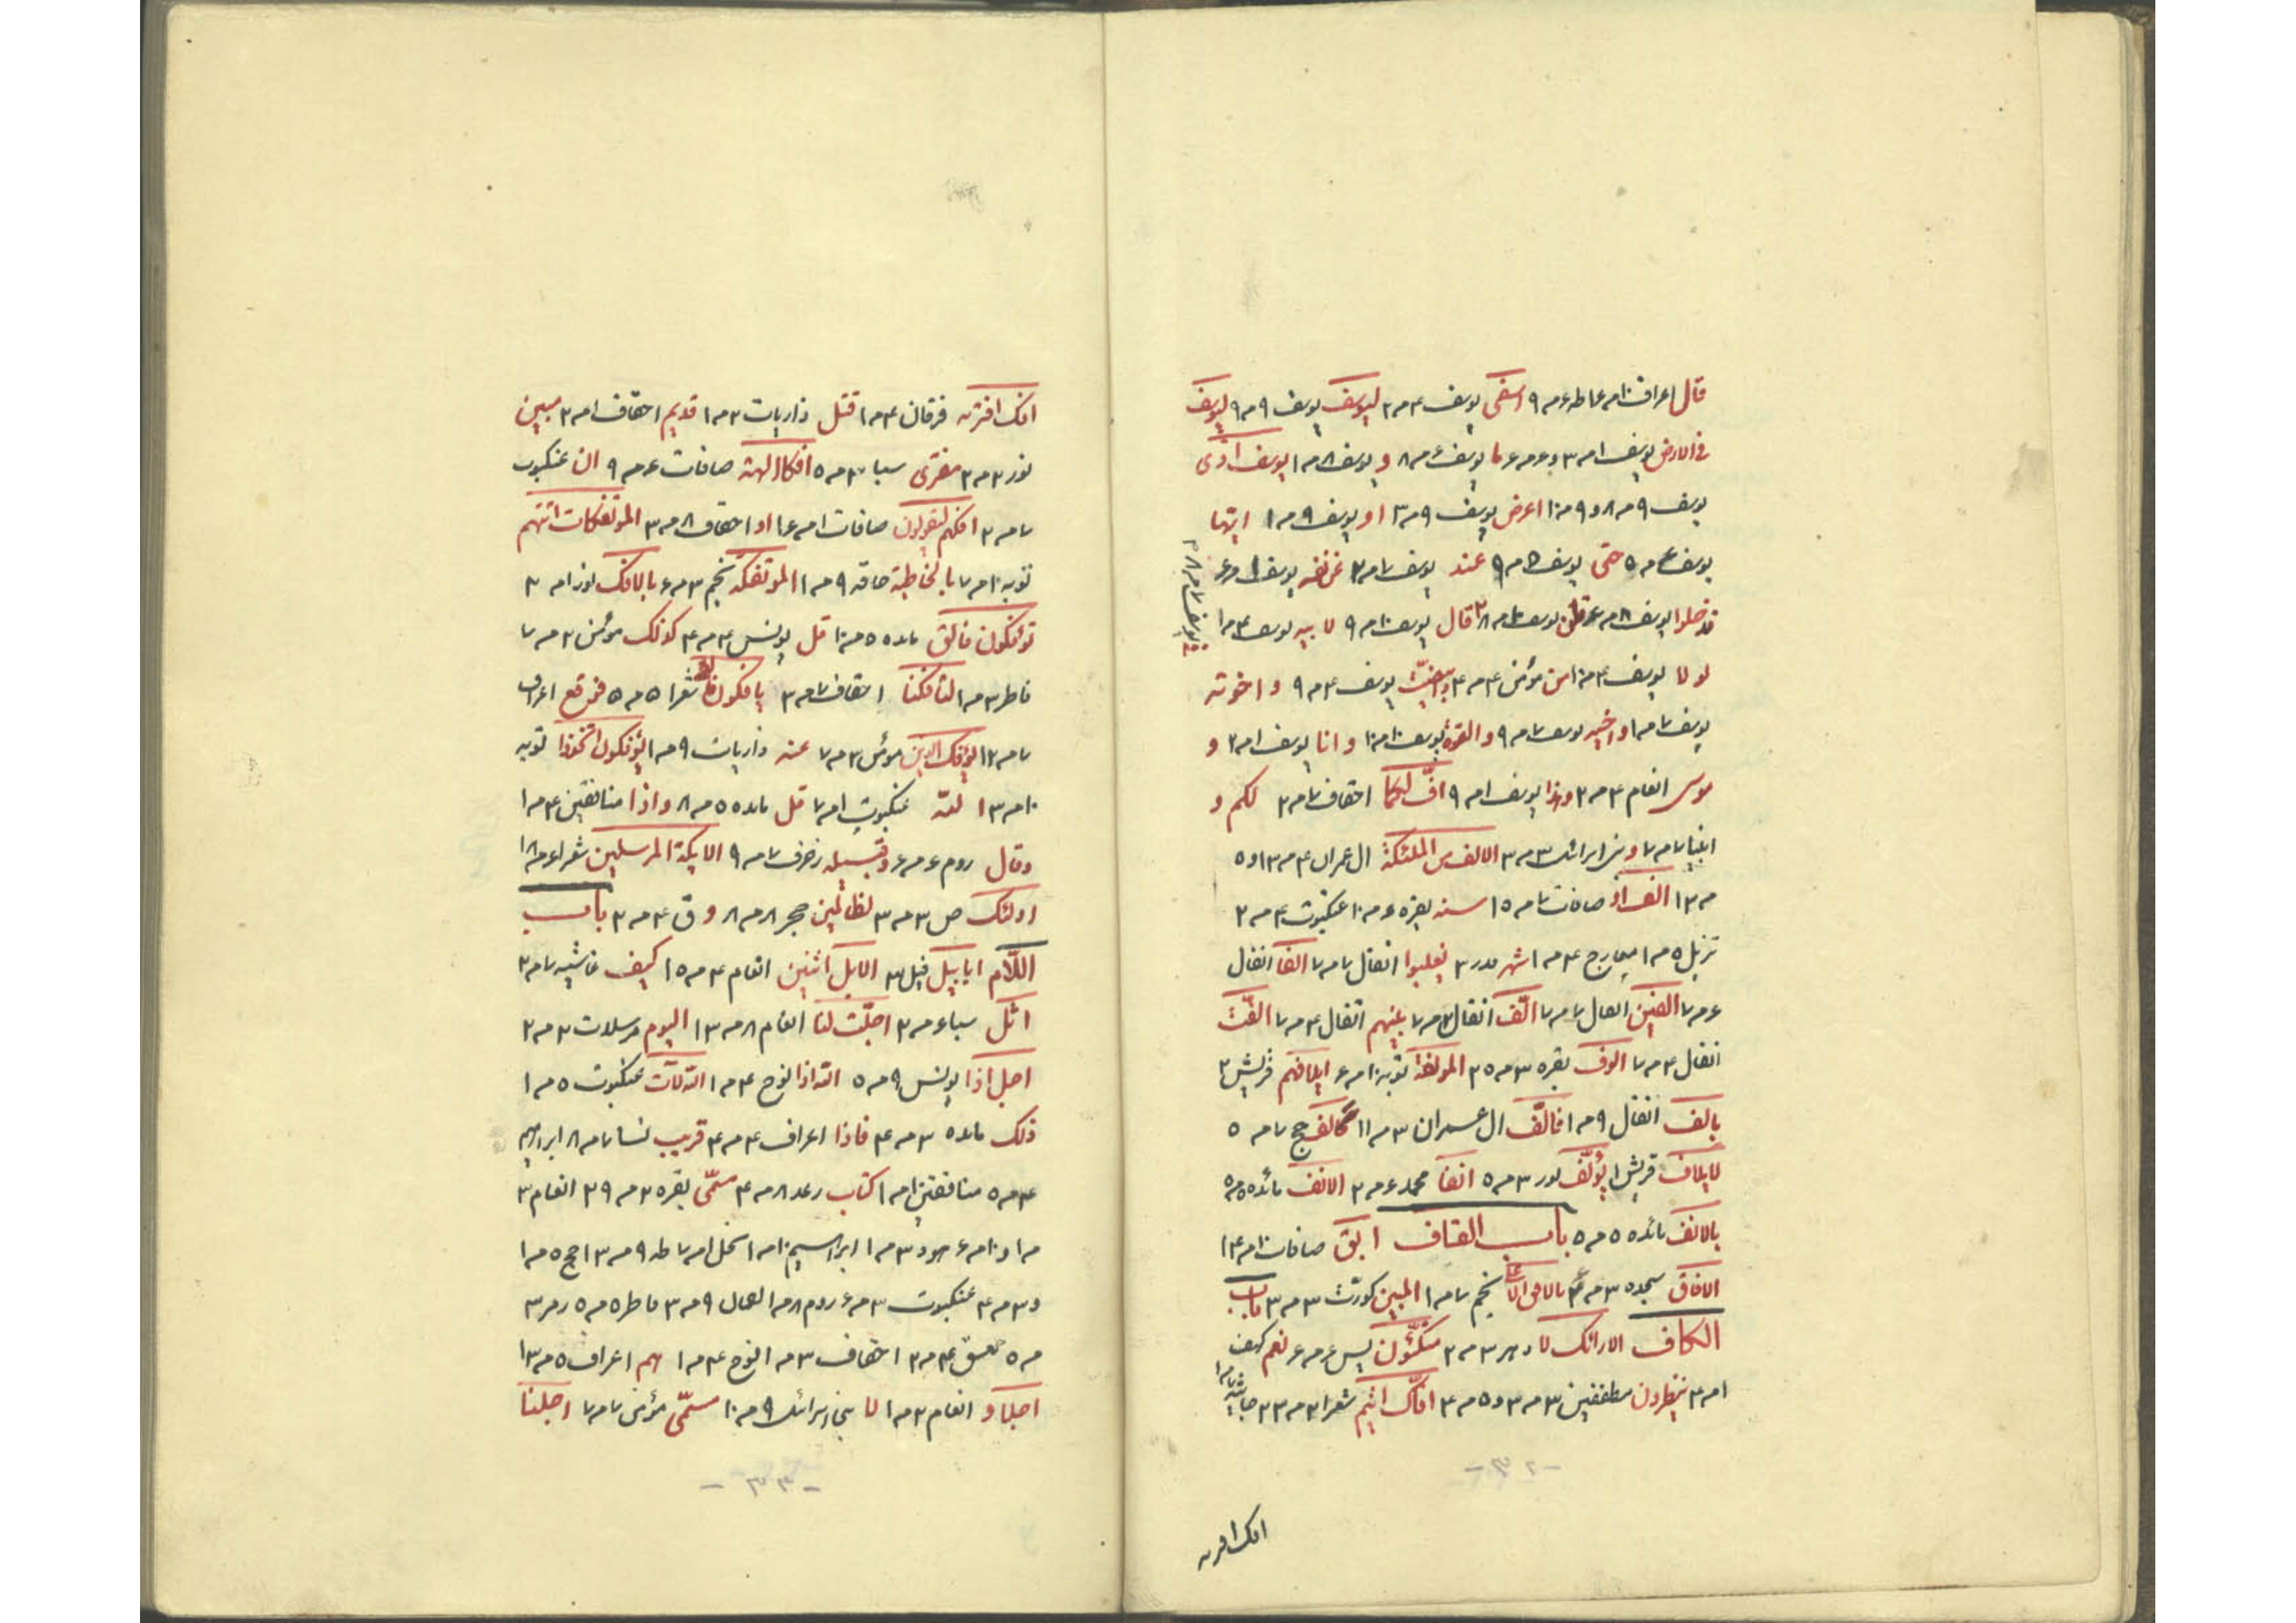 قال اعراف ١٠مـ عا طه ٤مـ ٩ اسفى يوسف ٤مـ ٢ ليوسف يوسف ٩مـ ٩ ليوسف
فى الارض يوسف ١مـ ٣ و٤مـ ٤ ما يوسف ٤مـ ٨ و يوسف ٨مـ ١ يوسف آوى
يوسف ٩مـ ٨ و ٩مـ ١٠ اعرض يوسف ٩مـ ٣ ا و يوسف ٩مـ ١ ايّها
يوسف ٤مـ ٥ حتى يوسف ٥مـ ٩ عند يوسف ٧مـ ٢ عن نفسه يوسف
فدخلوا يوسف ٨مـ قال يوسف ١٠مـ ٩ لابيه يوسف ٤مـ ١
لولا يوسف ٤مـ ١٠ من مؤمن ٤مـ ٤ يوسف ٤مـ ٩ واخوته
يوسف ٧مـ ١ واخيه يوسف ٧مـ ٩ والقوه يوسف ١٠مـ ١٠ وانا يوسف ١مـ ٢ و
موسى انعام ٤مـ ٢ وهذا يوسف ١مـ ٩ افّ لكما احقاف ٧مـ ٢ لكم و
انبيا ٧مـ ٧ و بنى اسرائل ٣مـ ٣ الالف من الملئكة ال عمران ٤مـ ١٣ و ٥
مـ ١٣ الف او صافات ٧مـ ١٥ سنه بقره ٤مـ ١٠ عنكبوت ٤مـ ٢
تنزيل ٥مـ ١ معارج ٤مـ ١ شهر قدر ٣ يغلبوا انفال ٧مـ ٧ الفا انفال
٤مـ ٧ الفين انفال ٧مـ ٧ الّف انفال ٣مـ ٧ بينهم انفال ٤مـ ٧ الفت
انفال ٤مـ ٧ الوف بقره ٣مـ ٢٥ المولفة توبه ١٠مـ ٤ ايلافهم قريش ٢
بالف انفال ٩مـ ١ فالّف ال عمران ٣مـ ١١ كالف حج ٧مـ ٥
لايلاف قريش ١ يؤلّف نور ٣مـ ٥ انفا محمد ٤مـ ٢ الانف مائده ٥مـ ٥
بالانف مائده ٥مـ ٥ باب القاف ابق صافات ١٠مـ ١٤
الافاق سجده ٣مـ بالافق نجم ٧مـ ١ المبين كورت ٣مـ ٣ باب
الكاف الارائك لا دهر ٣مـ ٢ متكئون يس ٤مـ ٤ نعم كهف
١مـ ٤ ينظرون مطففين ٣مـ ٣ و ٥مـ ٤ افّاك اثيم شعرا ٢مـ ٢٣ جاثيه ٧مـ ١
يوسف ٧مـ ٨
-٣٢-
افك افتريه
افك افتريه فرقان ٤مـ ١ قتل ذاريات ٢مـ ١ قديم احقاف ١مـ ٢ مبين
نور ٢مـ ٢ مفترى سبا ٣مـ ٥ افكا الهة صافات ٤مـ ٩ ان عنكبوت
٧مـ ٢ افكهم ليقولون صافات ١مـ ١٤ او احقاف ٨مـ ٣ المؤتفكات اتتهم
توبه ١٠مـ ٧ بالخاطئة حاقه ٩مـ ١ المؤتفكة نجم ٣مـ ٤ بالافك نور ١مـ ٢
تؤفكون فالق مائده ٥مـ ١٠ قل يونس ٤مـ ٤ كذلك مؤمن ٢مـ ٧
فاطر ٣مـ ١ لتافكنا احقاف ٧مـ ٣ يافكون شعرا ٥مـ ٥ فوقع اعراف
٧مـ ١٢ يؤفك الذين مؤمن ٣مـ ٧ عنه ذاريات ٩مـ ١ يؤفكون اتخذوا توبه
١٠مـ ١٣ الله عنكبوت ١مـ ٧ قل مائده ٥مـ ٨ واذا منافقين ٤مـ ١
وقال روم ٤مـ ٤ وقيله زخرف ٧مـ ٩ الايكة المرسلين شعرا ٤مـ ١٨
اولئك ص ٣مـ ٣ لظالمين حجر ٨مـ ٨ و ق ٤مـ ٢ باب
اللّام ابابيل فيل ٣ الابل اثنين انعام ٤مـ ١٥ كيف غاشيه ٧مـ ٢
اثل سبا ٤مـ ٢ اجّلت لنا انعام ٨مـ ١٣ اليوم مرسلات ٢مـ ٢
اجل اذا يونس ٩مـ ٥ الله اذا نوح ٤مـ ١ الله لآت عنكبوت ٥مـ ١
ذلك مائده ٣مـ ٤ فاذا اعراف ٤مـ ٤ قريب نسا ٧مـ ٨ ابراهيم
٤مـ ٥ منافقين ١مـ ١ كتاب رعد ٨مـ ٤ مسمّى بقره ٢مـ ٣٩ انعام ٢
مـ ١ و ١٠مـ ٤ هود ٣مـ ١ ابراهيم ١٠مـ ١ نحل ١مـ ٧ طه ٩مـ ١٣ حج ٥مـ ١
و ٣مـ ٤ عنكبوت ٣مـ ٤ روم ٨مـ ١ لقمان ٩مـ ٣ فاطر ٥مـ ٥ زمر ٣
مـ ٥ حمعسق ٤مـ ٢ احقاف ٣مـ ١ نوح ٤مـ ١ هم اعراف ٥مـ ١٣
اجلا و انعام ٢مـ ١ لا بنى اسرائل ٩مـ ١٠ مسمّى مؤمن ٧مـ ٧ اجلنا
-٣٣-